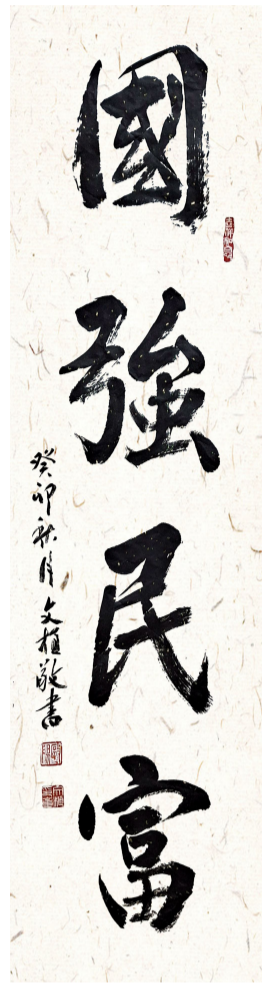 國強民富
癸卯秋月文植敬書